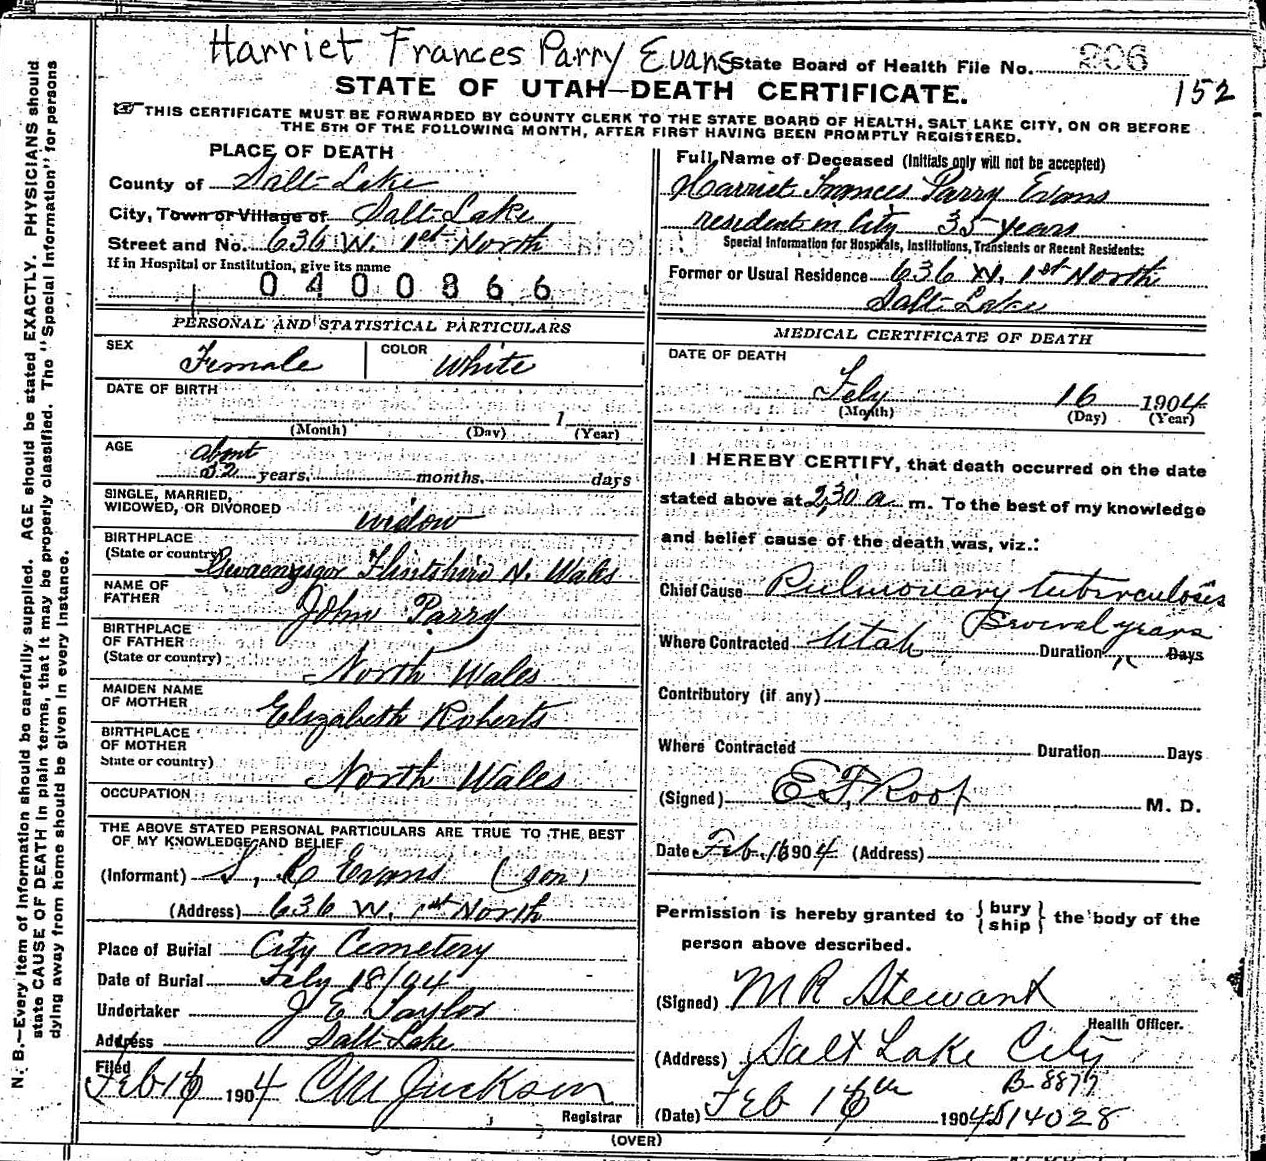 Harriet Frances Parry Evans State Board of Health File No. 206
152
STATE OF UTAH—DEATH CERTIFICATE.
THIS CERTIFICATE MUST BE FORWARDED BY COUNTY CLERK TO THE STATE BOARD OF HEALTH, SALT LAKE CITY, ON OR BEFORE
THE 5TH OF THE FOLLOWING MONTH, AFTER FIRST HAVING BEEN PROMPTLY REGISTERED.
PLACE OF DEATH
County of Salt Lake
City, Town or Village of Salt Lake
Street and No. 636 W. 1st North
If in Hospital or Institution, give its name
0400866
Full Name of Deceased (Initials only will not be accepted)
Harriet Frances Parry Evans
resident in City 35 years
Special Information for Hospitals, Institutions, Transients or Recent Residents:
Former or Usual Residence 636 W. 1st North
Salt Lake
PERSONAL AND STATISTICAL PARTICULARS
SEX Female COLOR White
DATE OF BIRTH
1
(Month) (Day) (Year)
AGE about
52 years, months, days
SINGLE, MARRIED,
WIDOWED, OR DIVORCED widow
BIRTHPLACE
(State or country) Flintshire N. Wales
NAME OF
FATHER John Parry
BIRTHPLACE
OF FATHER
(State or country) North Wales
MAIDEN NAME
OF MOTHER Elizabeth Roberts
BIRTHPLACE
OF MOTHER
State or country) North Wales
OCCUPATION
THE ABOVE STATED PERSONAL PARTICULARS ARE TRUE TO THE BEST
OF MY KNOWLEDGE AND BELIEF
(Informant) Evans (son)
(Address) 636 W. 1st North
Place of Burial City Cemetery
Date of Burial Feby 18/04
Undertaker J E Taylor
Address Salt Lake
Filed
Feb 16 1904 Jackson
Registrar
MEDICAL CERTIFICATE OF DEATH
DATE OF DEATH
Feby 16 1904
(Month) (Day) (Year)
I HEREBY CERTIFY, that death occurred on the date
stated above at 2,30 a m. To the best of my knowledge
and belief cause of the death was, viz.:
Chief Cause Pulmonary tuberculosis
Several years
Where Contracted Utah Duration Days
Contributory (if any)
Where Contracted Duration Days
(Signed) E. F. Root M. D.
Date Feb. 16 1904 (Address)
Permission is hereby granted to { bury
ship } the body of the
person above described.
(Signed) M R Stewart
Health Officer.
(Address) Salt Lake City
B-8877
(Date) Feb 16th 1904 S14028
(OVER)
N. B.—Every item of Information should be carefully supplied. AGE should be stated EXACTLY. PHYSICIANS should
state CAUSE OF DEATH in plain terms, that it may be properly classified. The "Special Information" for persons
dying away from home should be given in every instance.